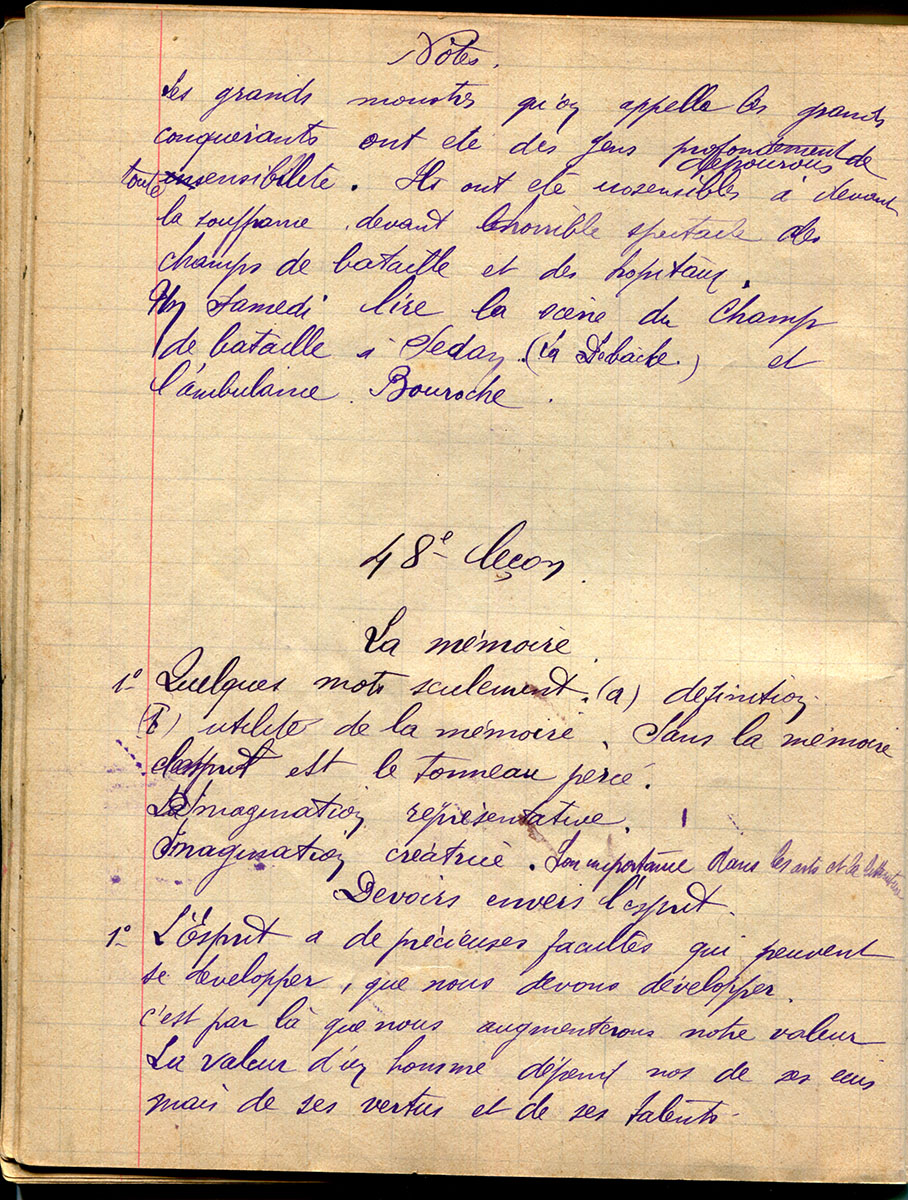 Notes.
Les grands monstres qu'on appelle les grands
conquérants ont été des gens profondément
dépourvus de
toute sensibilité. Ils ont été insensibles à devant
la souffrance, devant l'horrible spectacle des
champs de bataille et des hopitaux.
Un Samedi lire la scène du Champ
de bataille à Sedan. (La Débacle) et
l'ambulance Bouroche.
48e leçon.
La mémoire.
1º Quelques mots seulement. (a) définition
(b) utilité de la mémoire. Sans la mémoire
l'esprit est le tonneau percé.
L'Imagination représentative.
Imagination créatrice. Son importance dans les arts et la littérature
Devoirs envers l'esprit.
1º L'Esprit a de précieuses facultés qui peuvent
se développer, que nous devons développer.
c'est par là que nous augmenterons notre valeur
La valeur d'un homme dépend non de ses
mais de ses vertus et de ses talents.